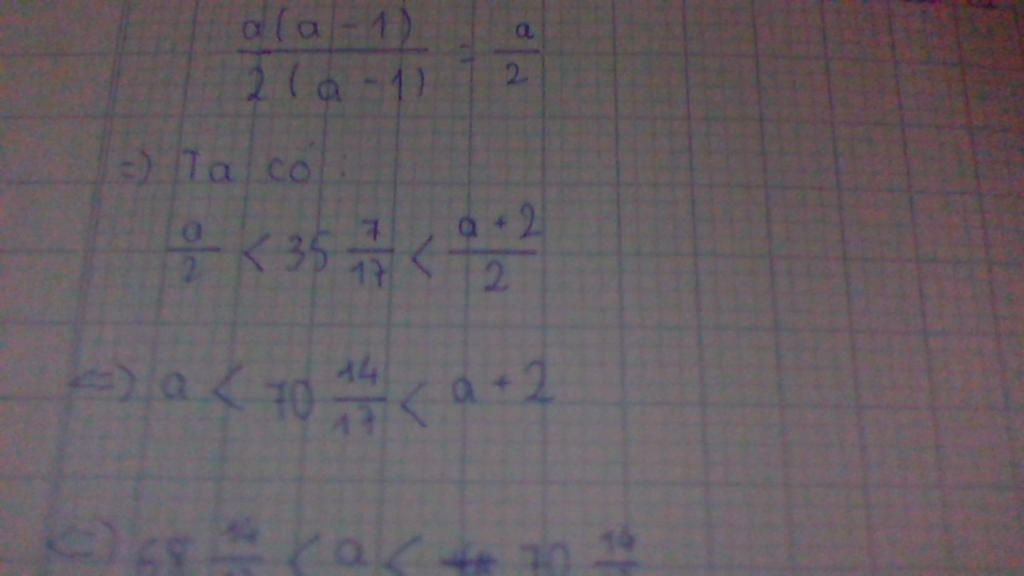 a(a-1)/2(a-1) = a/2
=) Ta có:
a/2 < 35 7/17 < a+2/2
<=) a < 70 14/17 < a+2
<=) 68 14/17 < a < 70 14/17